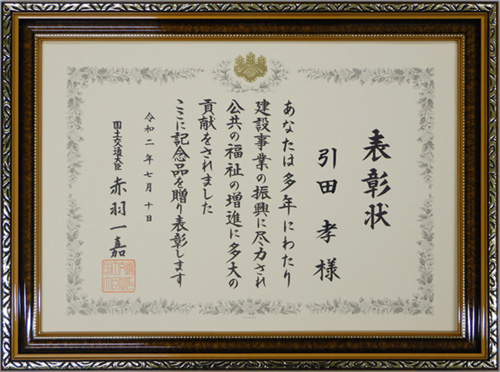 表彰状
引田孝様
あなたは多年にわたり
建設事業の振興に尽力され
公共の福祉の増進に多大の
貢献をされました
ここに記念品を贈り表彰します
令和二年七月十日
国土交通大臣 赤羽一嘉